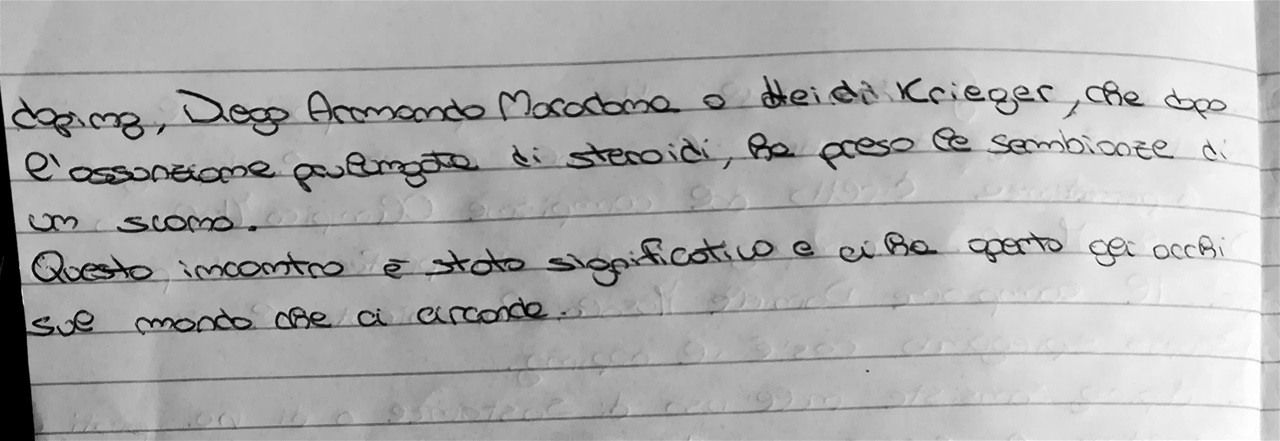 doping, Diego Armando Maradona o Heidi Krieger, che dopo
l'assunzione prolungata di steroidi, ha preso le sembianze di
un uomo.
Questo incontro è stato significativo e ci ha aperto gli occhi
sul mondo che ci circonda.